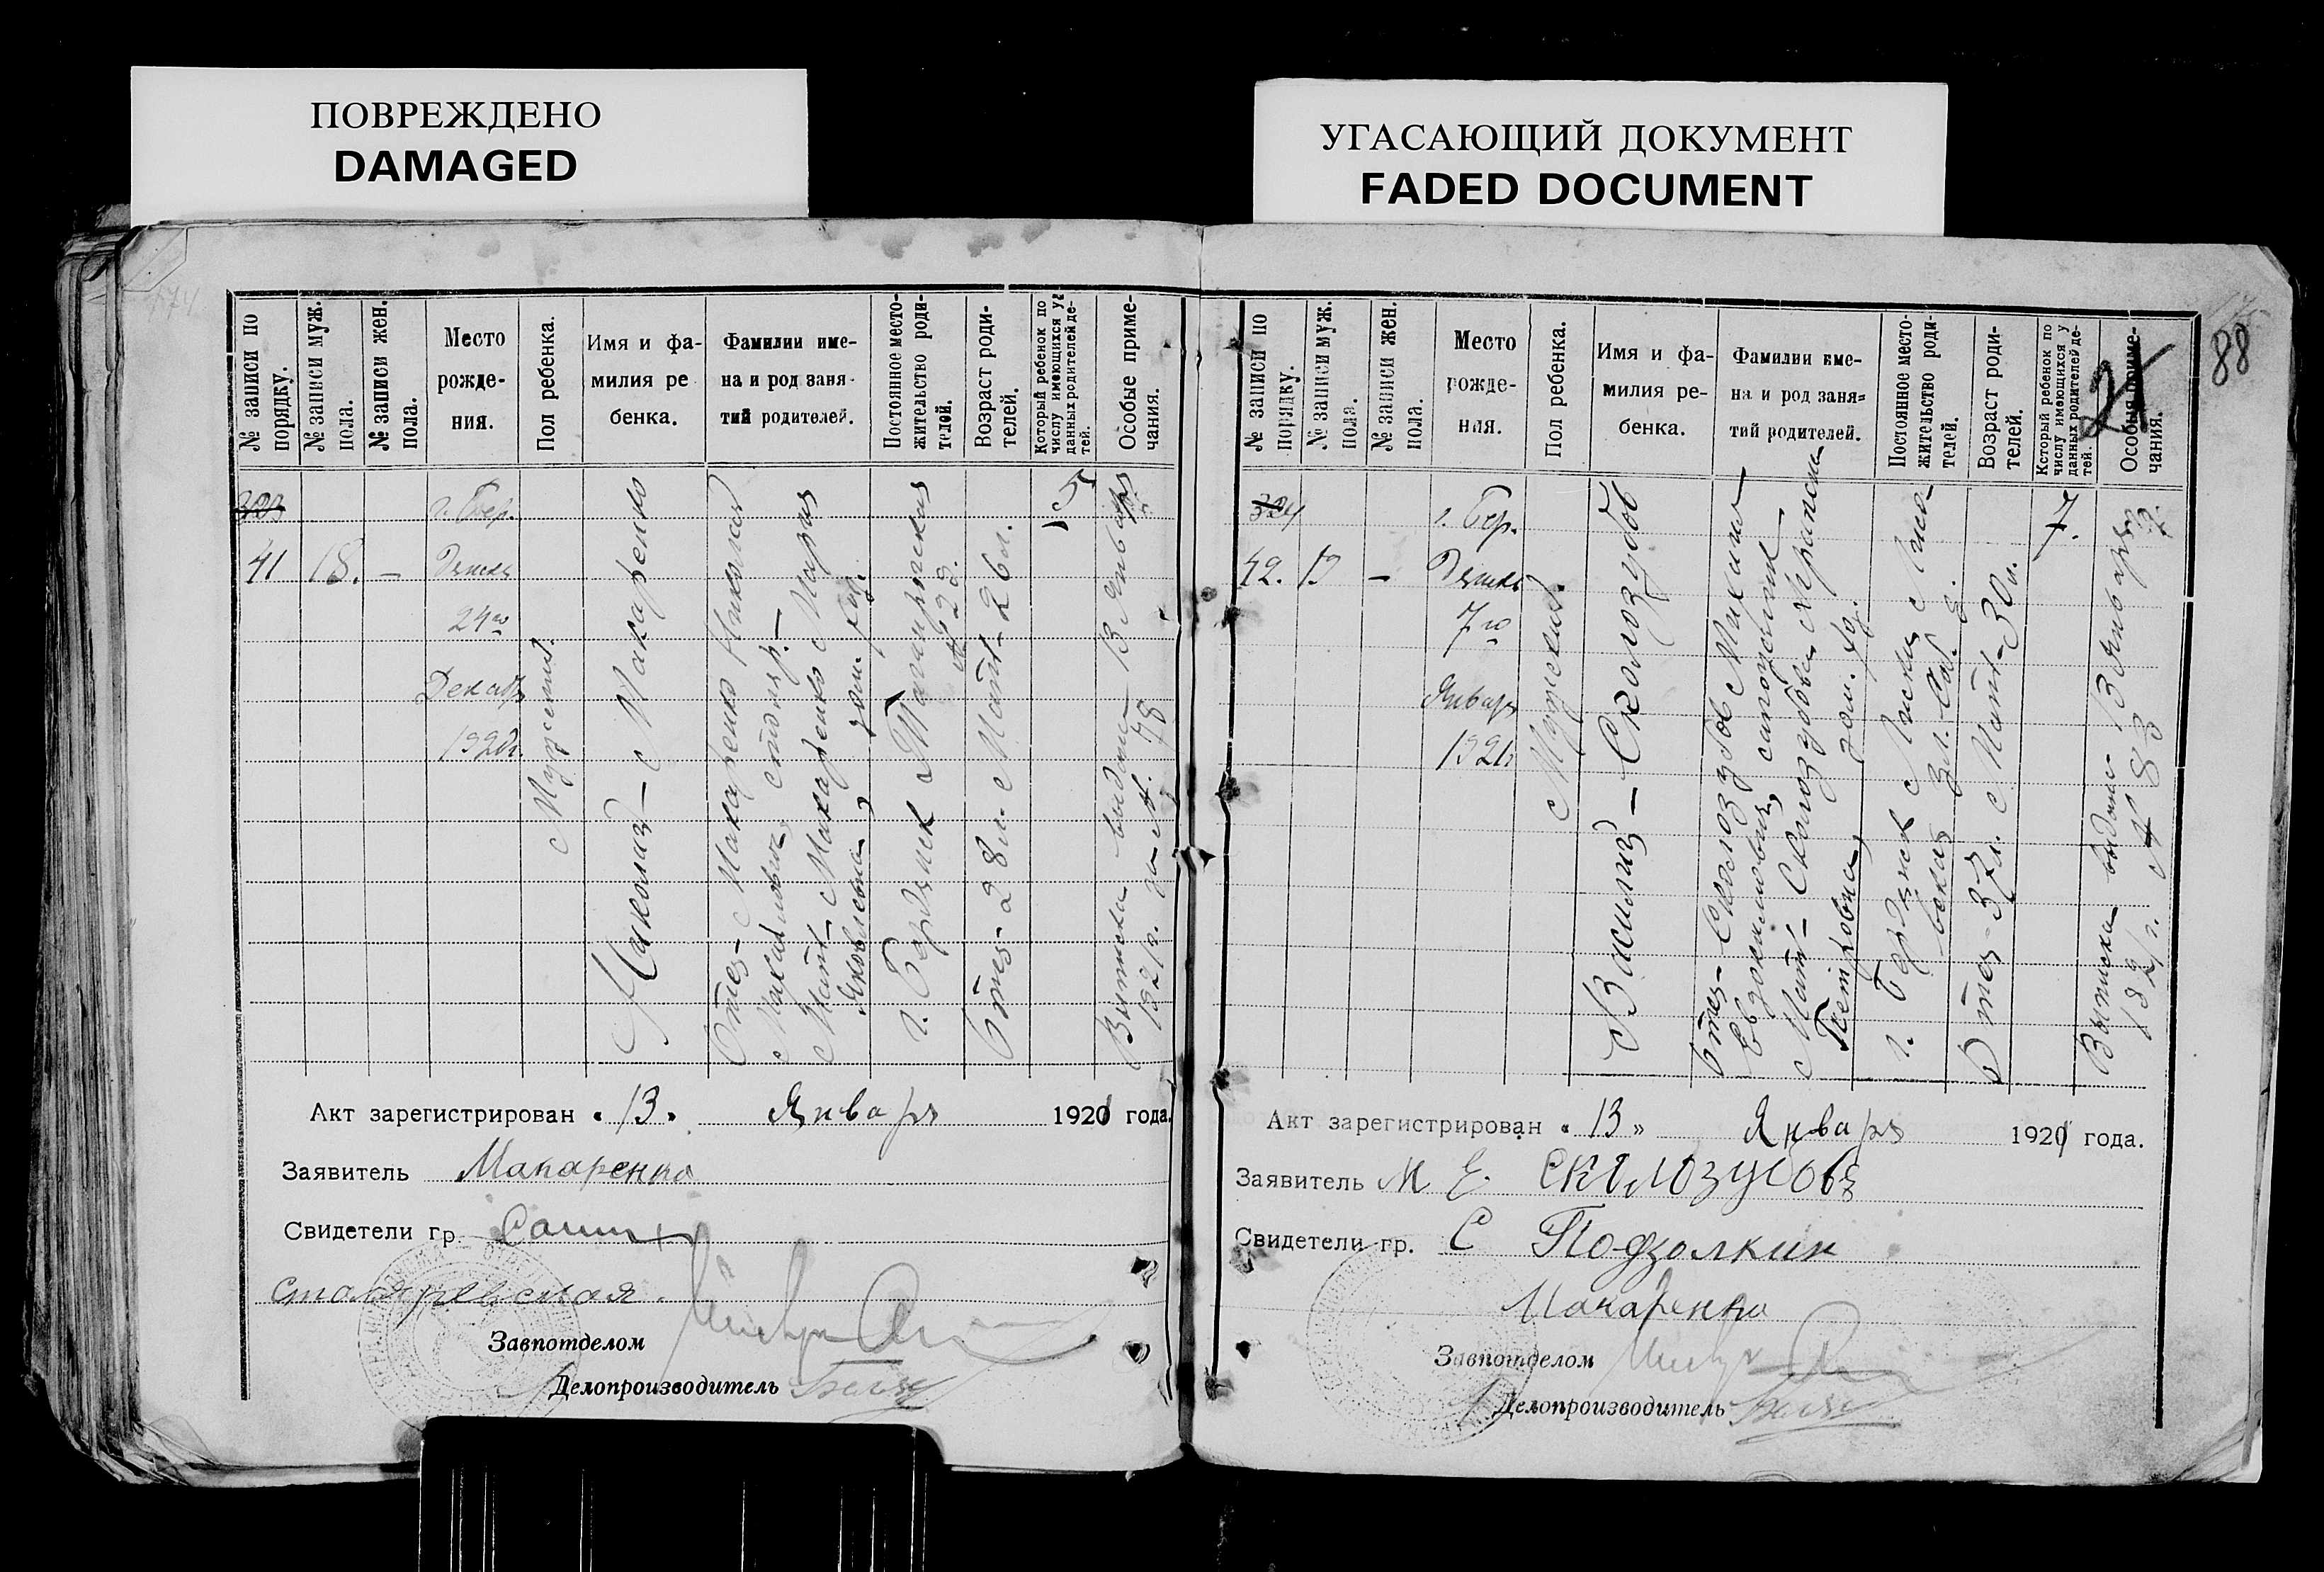 ПОВРЕЖДЕНО
DAMAGED
УГАСАЮЩИЙ ДОКУМЕНТ
FADED DOCUMENT
174
№ записи по порядку.
№ записи муж. пола.
№ записи жен. пола.
Место рожде-ния.
Пол ребенка.
Имя и фа-милия ре бенка.
Фамилии име-на и род заня-тий родителей.
Постоянное место-жительство роди-телей.
Возраст роди-телей.
Который ребенок по числу имеющихся у данных родителей де-тей.
Особые приме-чания.
323
41
18.
—
г. Бер.
дянск
24го
Декабр
1920г.
Мужеский.
Николай — Макаренко
Отец — Макаренко Николай
Мать — Макаренко Мария
Яковлевна, дом. хоз.
г. Бердянск Таганрогская
№ 2 д.
Отец — 28 л. Мать — 26 л.
5
Выписка выдана 13 января
1921г. за № 78
Акт зарегистрирован « 13 » Января 1921 года.
Заявитель Макаренко
Свидетели гр.
Завпотделом
Делопроизводитель
88
21
№ записи по порядку.
№ записи муж. пола.
№ записи жен. пола.
Место рожде-ния.
Пол ребенка.
Имя и фа-милия ре-бенка.
Фамилии име-на и род заня-тий родителей.
Постоянное место-жительство роди-телей.
Возраст роди-телей.
Который ребенок по числу имеющихся у данных родителей де-тей.
Особые приме-чания.
324
42.
19
—
г. Бер.
дянск
7го
Январ
1921г
Мужеский.
Василий — Сколозубов
Отец — Сколозубов Михаил
Евдокимович, сапожник
Мать — Сколозубова
Петровна, дом. хоз.
г. Бердянск
Отец — 37 л. Мать — 30 л.
7.
Выписка выдана 13 января
1921г. № 83
Акт зарегистрирован « 13 » Января 1921 года.
Заявитель М Е. Скллозубовъ
Свидетели гр. С Подзолкин
Макаренко
Завпотделом
Делопроизводитель